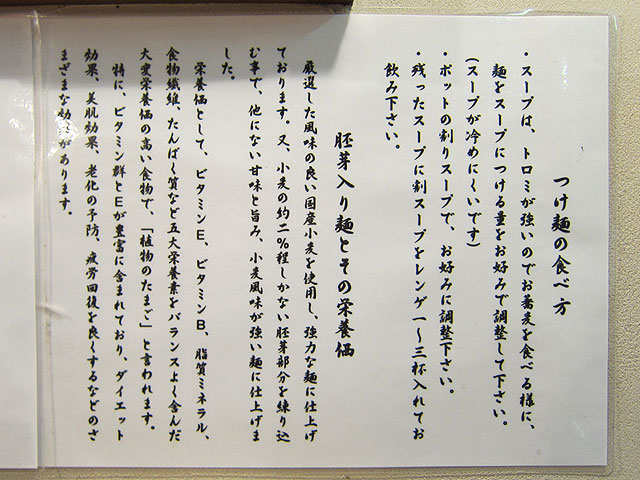 つけ麺の食べ方
・スープは、トロミが強いのでお蕎麦を食べる様に、
麺をスープにつける量をお好みで調整して下さい。
(スープが冷めにくいです)
・ポットの割りスープで、お好みに調整下さい。
・残ったスープに割スープをレンゲ一～三杯入れてお
飲み下さい。
胚芽入り麺とその栄養価
厳選した風味の良い国産小麦を使用し、強力な麺に仕上げ
ております。又、小麦の約二%程しかない胚芽部分を練り込
む事で、他にない甘味と旨み、小麦風味が強い麺に仕上げま
した。
栄養価として、ビタミンE、ビタミンB、脂質ミネラル、
食物繊維、たんぱく質など五大栄養素をバランスよく含んだ
大変栄養価の高い食物で、「植物のたまご」と言われます。
特に、ビタミン群とEが豊富に含まれており、ダイエット
効果、美肌効果、老化の予防、疲労回復を良くするなどのさ
まざまな効果があります。